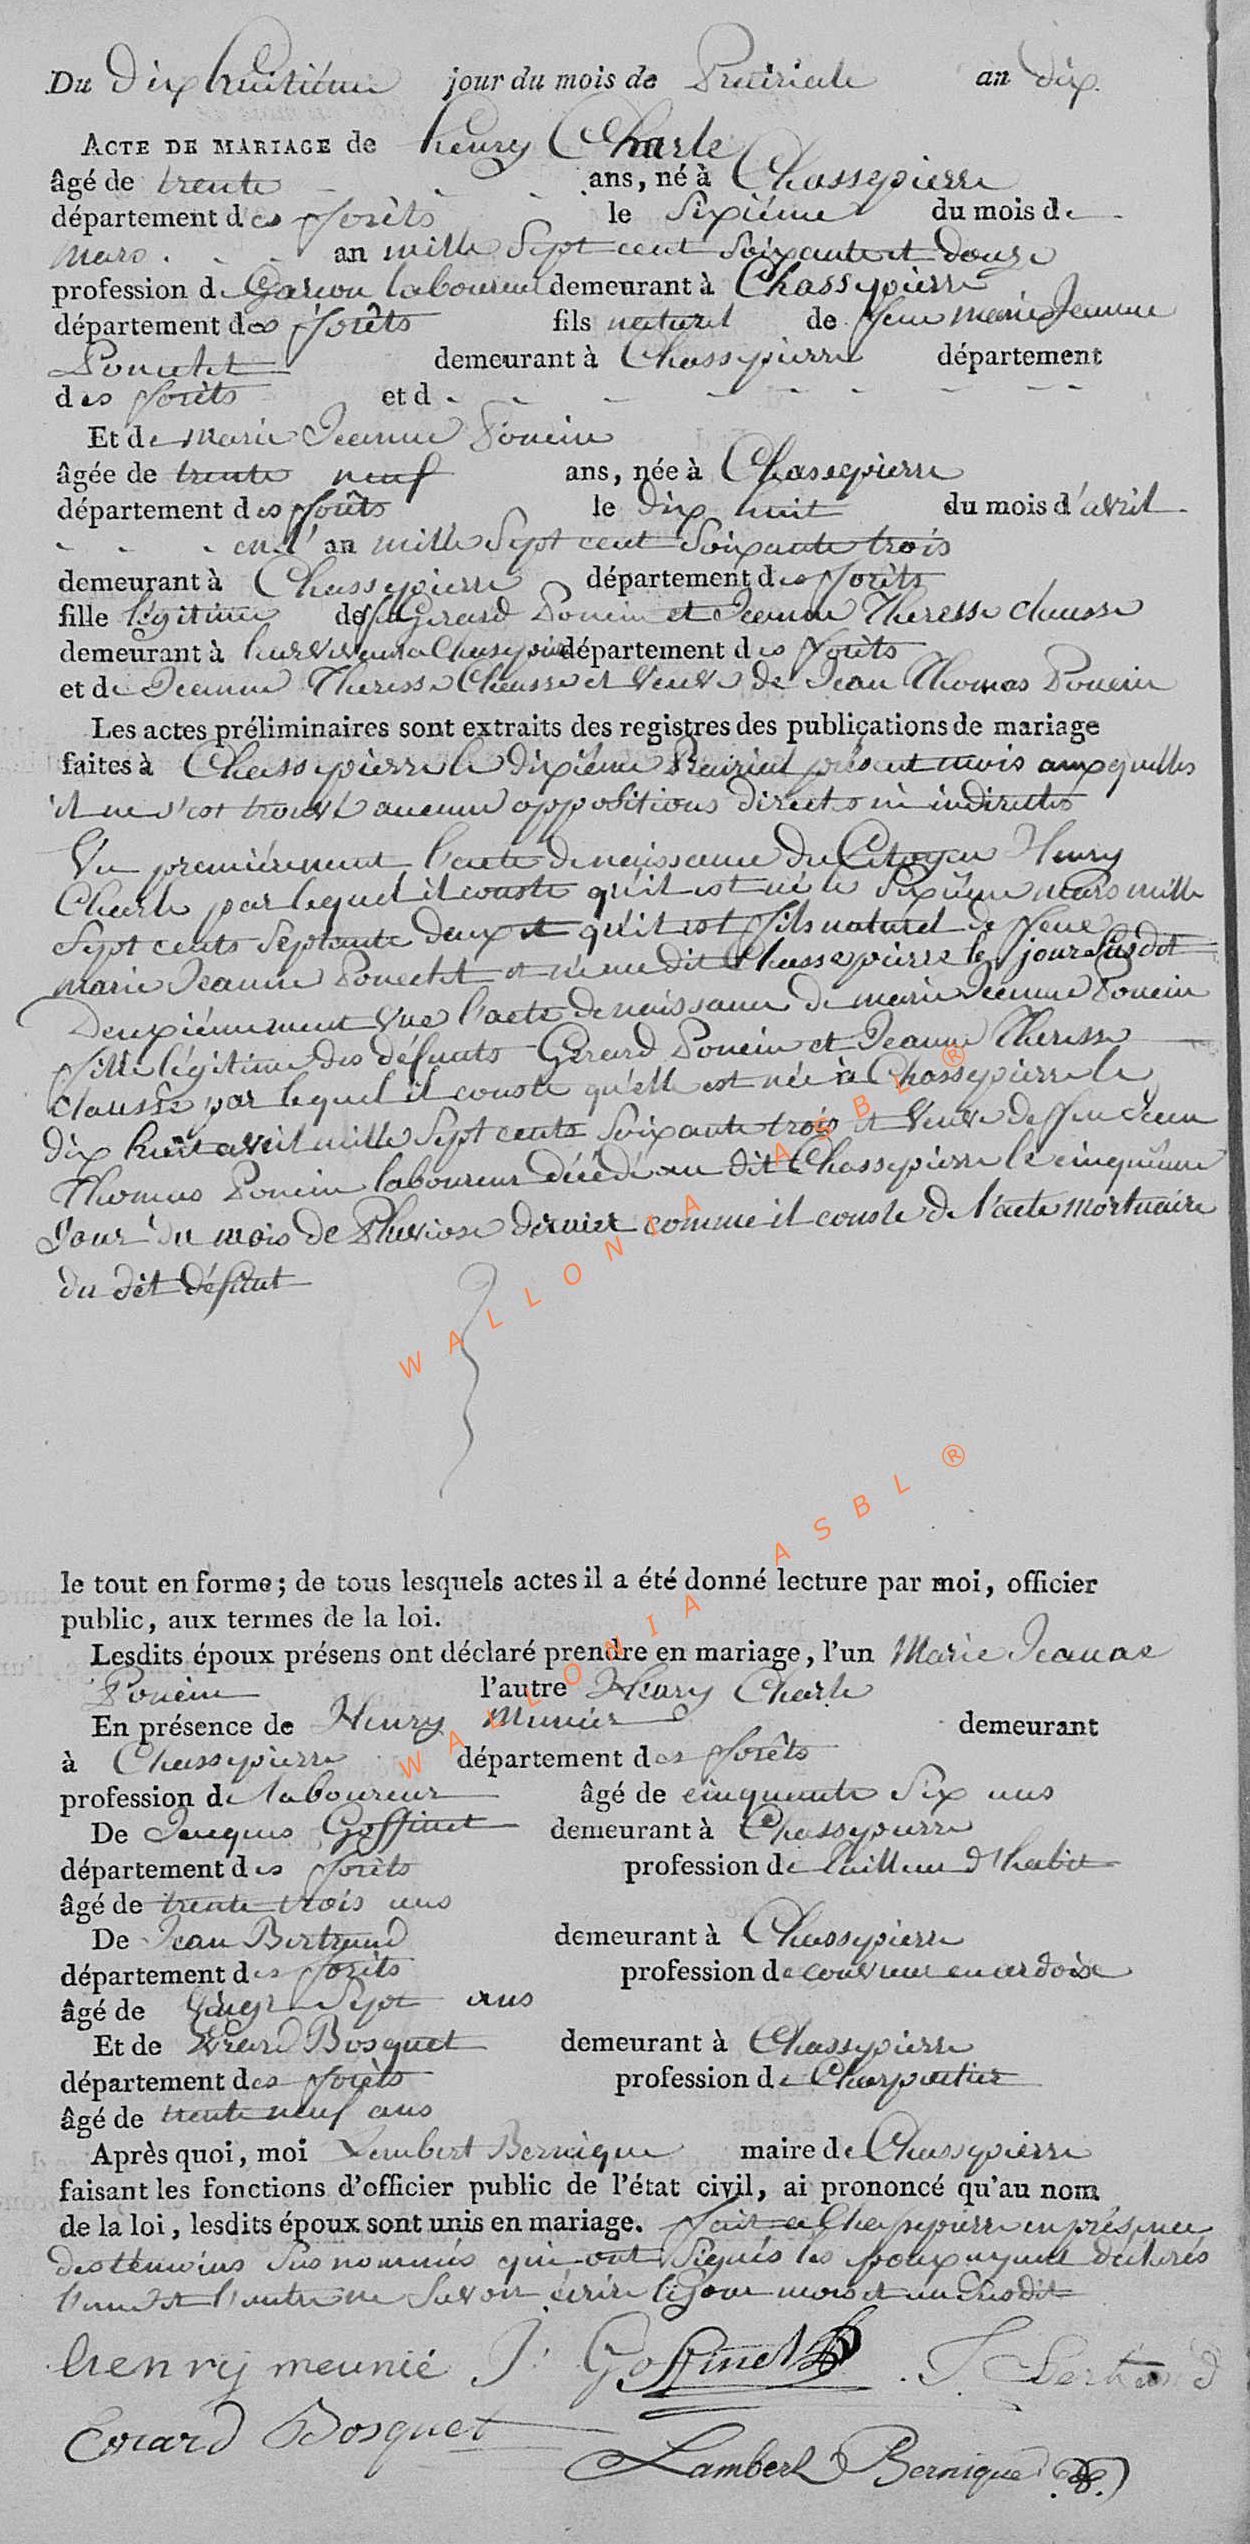 Du Dix huitiéme jour du mois de Prairiale an dix.
ACTE DE MARIAGE de henry Charle
âgé de trente ans, né à Chassepierre
département des forêts le Sixiéme du mois de
Mars an mille Sept cent Soixante et douze
profession de Garcon laboureur demeurant à Chassepierre
département des forêts fils naturel de feue marie Jeanne
Poncelet demeurant à Chassepierre département
des forêts et d
Et de marie Jeanne Poncin
âgée de trente neuf ans, née à Chassepierre
département des forêts le dix huit du mois d'avril
en l'an mille Sept cent Soixante trois
demeurant à Chassepierre département des forêts
fille légitime de Gerard Poncin et Jeanne Theresse clausse
demeurant à leur vivant a Chassepierre département des forêts
et de Jeanne Theresse Clausse et veuve de Jean Thomas Poncin
Les actes préliminaires sont extraits des registres des publications de mariage
faites à Chassepierre le dixiéme Prairial présent mois auxquelles
il ne s'est trouvé aucune oppositions directes ni indirectes
Vu premiérement l'acte de naissance du Citoyen Henry
Charle par lequel il conste qu'il est né le Sixiéme mars mille
Sept cents Septante deux et qu'il est fils naturel de feue
marie Jeanne Poncelet et né au dit Chassepierre le jour Susdit
Deuxiémement vue l'acte de naissance de marie Jeanne Poncin
fille légitime des défunts Gerard Poncin et Jeanne Theresse
clausse par lequel il conste qu'elle est née à Chassepierre le
dix huit avril mille Sept cents Soixante trois et veuve de feu Jean
Thomas Poncin laboureur décédé au dit Chassepierre le cinquiéme
Jour du mois de Pluviose dernier comme il conste de l'acte mortuaire
du dit défunt
WALLONIA ASBL ®
WALLONIA ASBL ®
le tout en forme; de tous lesquels actes il a été donné lecture par moi, officier
public, aux termes de la loi.
Lesdits époux présens ont déclaré prendre en mariage, l'un Marie Jeanne
Poncin l'autre Henry Charle
En présence de Henry Munier demeurant
à Chassepierre département des forêts
profession de laboureur âgé de cinquante Six ans
De Jacques Goffinet demeurant à Chassepierre
département des forêts profession de tailleur d'habit
âgé de trente trois ans
De Jean Bertrand demeurant à Chassepierre
département des forêts profession de couvreur en ardoise
âgé de Vingt Sept ans
Et de Erard Bosquet demeurant à Chassepierre
département des forêts profession de Charpentier
âgé de trente neuf ans
Après quoi, moi Lambert Bernique maire de Chassepierre
faisant les fonctions d'officier public de l'état civil, ai prononcé qu'au nom
de la loi, lesdits époux sont unis en mariage. fait a Chassepierre en présence
des témoins Susnommés qui ont Signés les époux ayant déclarés
l'un et l'autre ne Savoir écrire les jour mois et an Susdit
henry meunié J. Goffinet J. Bertrand
Erard Bosquet
Lambert Bernique